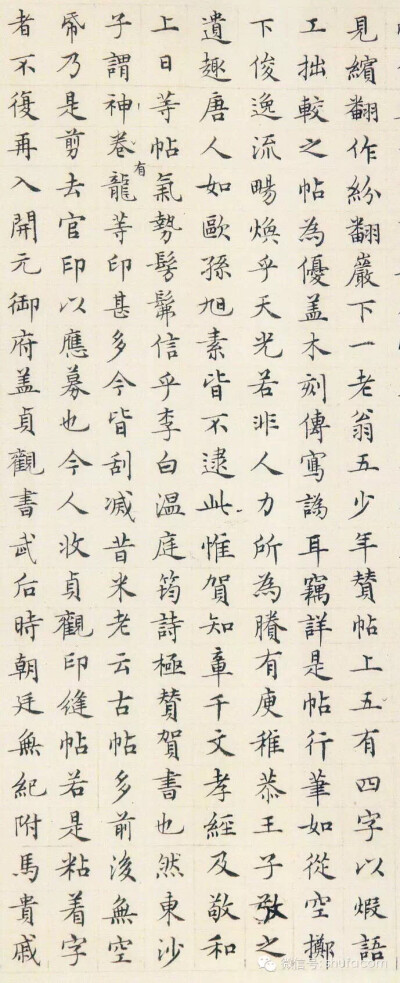 見繽翻作紛翻巖下一老翁五少年贊帖上五有四字以煆語
工拙較之帖為優盖木刻傳寫譌耳竊詳是帖行筆如從空擲
下俊逸流暢煥乎天光若非人力所為賸有庾稚恭王子敬之
遺趣唐人如歐孫旭素皆不逮此惟賀知章千文孝經及敬和
上日等帖氣勢髣髴信乎李白溫庭筠詩極贊賀書也然東沙
子謂神卷有龍等印甚多今皆刮滅昔米老云古帖多前後無空
帋乃是剪去官印以應募也今人收貞觀印縫帖若是粘着字
者不復再入開元御府盖貞觀書武后時朝廷無紀附馬貴戚
微信号: